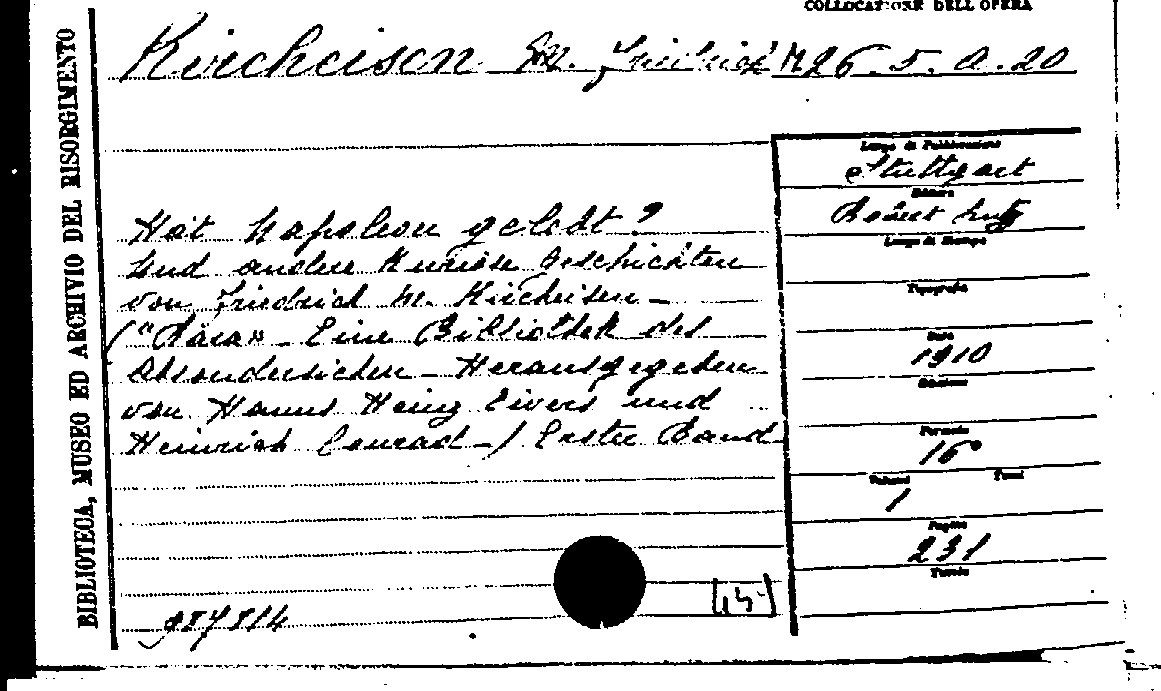 COLLOCATIONE DELL'OPERA
Kircheisen M. Friedrich M. 26.5.A.20
BIBLIOTECA, MUSEO ED ARCHIVIO DEL RISORGIMENTO
Hat Napoleon gelebt?
Und andere Kuriose Geschichten
von Friedrich M. Kircheisen -
("Rara" - Eine Bibliothek des
Absonderlichen - Herausgegeben
von Hanns Heinz Ewers und
Heinrich Conrad -) Erster Band
Luogo di Pubblicazione
Stuttgart
Editore
Robert Lutz
Luogo di Stampa
Tipografia
Data
1910
Edizione
Formato
16°
Volumi Tomi
1
Pagine
231
Tavole